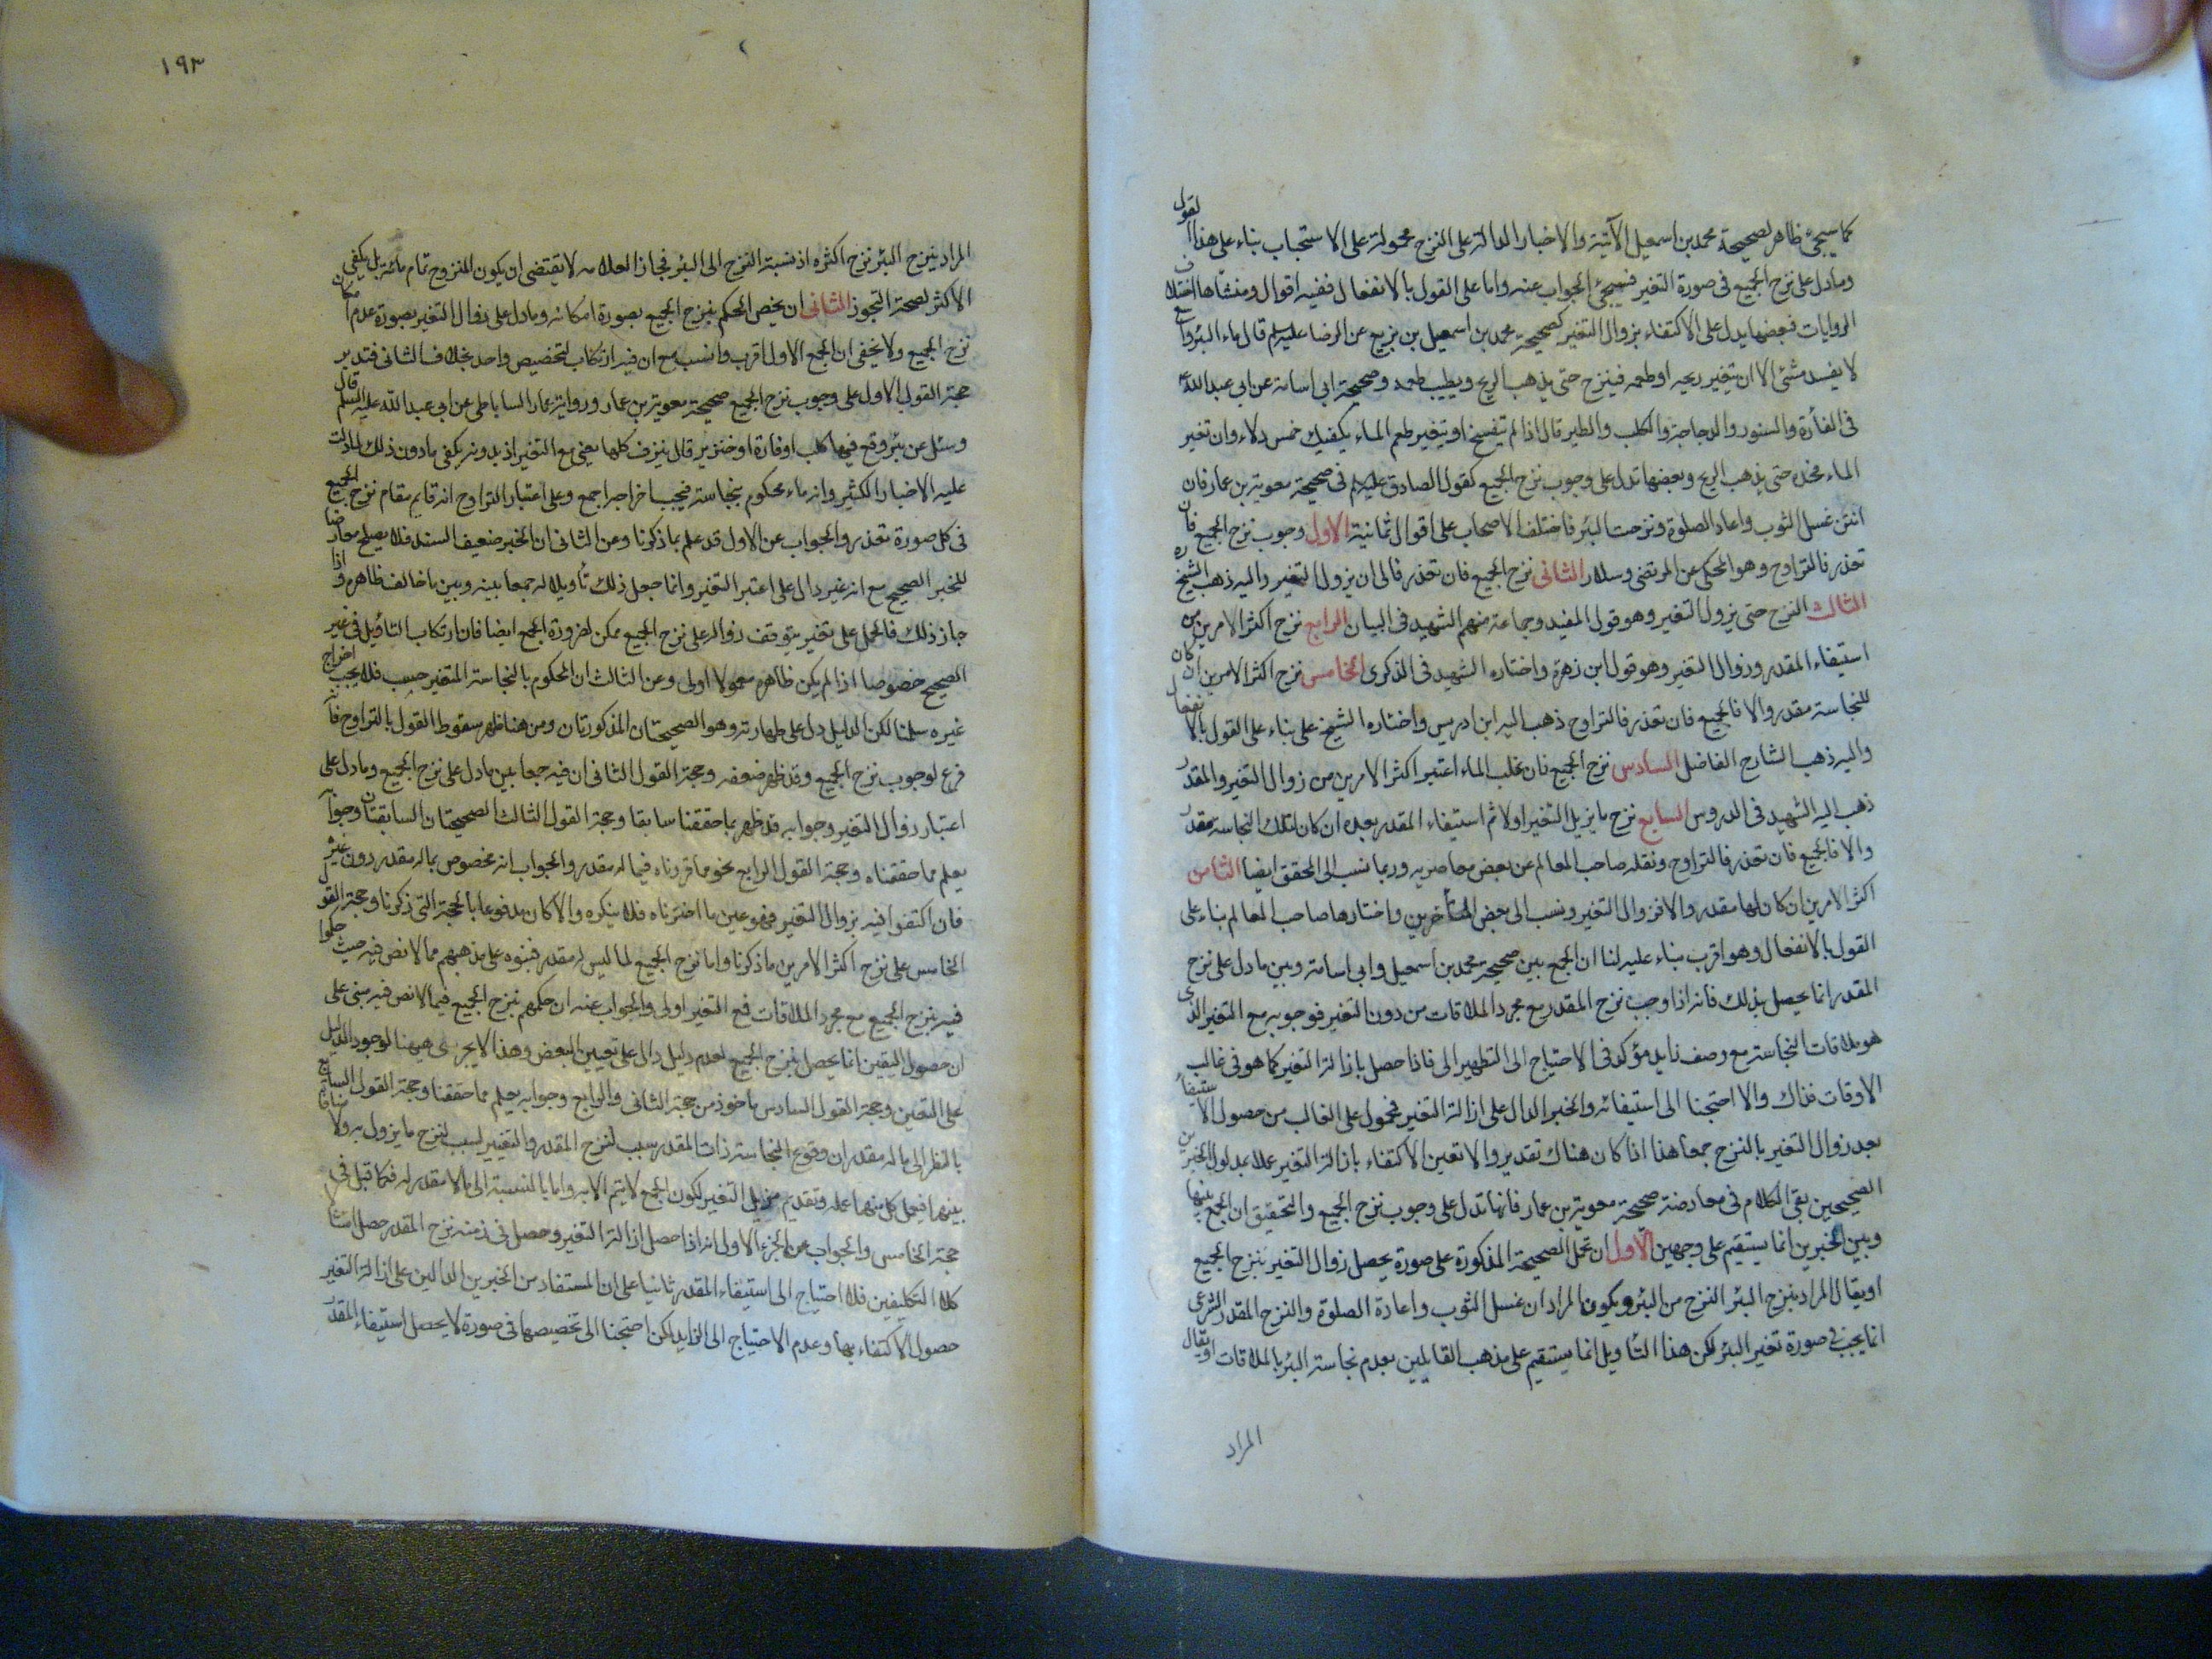 كما سيجئ ظاهر لصحيحة محمد بن اسمعيل الآتية والاخبار الدالة على النزح محمولة على الاستحباب بناء على هذا القول
وما دل على نزح الجميع فى صورة التغير فسيجئ الجواب عنه واما على القول بالانفعال ففيه اقوال ومنشاها اختلاف
الروايات فبعضها يدل على الاكتفاء بزوال التغير كصحيحة محمد بن اسمعيل بن بزيع عن الرضا عليه السلم قال ماء البئر واسع
لا يفسد شئ الا ان يتغير ريحه او طعمه فينزح حتى يذهب الريح ويطيب طعمه وصحيحة ابى اسامة عن ابى عبد الله ع
فى الفأرة والسنور والدجاجة والكلب والطير قال اذا لم تتفسخ او يتغير طعم الماء يكفيك خمس دلاء وان تغير
الماء فخذه حتى يذهب الريح وبعضها تدل على وجوب نزح الجميع كقول الصادق عليه السلم فى صحيحة معوية بن عمار فان
انتن غسل الثوب واعاد الصلوة ونزحت البئر فاختلف الاصحاب على اقوال ثمانية الاول وجوب نزح الجميع فان
تعذر فالتراوح وهو المحكى عن المرتضى وسلار الثانى نزح الجميع فان تعذر فالى ان يزول التغير واليه ذهب الشيخ ره
الثالث النزح حتى يزول التغير وهو قول المفيد وجماعة منهم الشهيد فى البيان الرابع نزح اكثر الامرين من
استيفاء المقدر وزوال التغير وهو قول ابن زهرة واختاره الشهيد فى الذكرى الخامس نزح اكثر الامرين ان كان
للنجاسة مقدر والا فالجميع فان تعذر فالتراوح ذهب اليه ابن ادريس واختاره الشيخ على بناء على القول بالانفعال
واليه ذهب الشارح الفاضل السادس نزح الجميع فان غلب الماء اعتبر اكثر الامرين من زوال التغير والمقدر
ذهب اليه الشهيد فى الدروس السابع نزح ما يزيل التغير اولا ثم استيفاء المقدر بعده ان كان لتلك النجاسة مقدر
والا فالجميع فان تعذر فالتراوح ونقله صاحب المعالم عن بعض معاصريه وربما نسب الى المحقق ايضا الثامن
اكثر الامرين ان كان لها مقدر والا فزوال التغير ونسب الى بعض المتأخرين واختارها صاحب المعالم بناء على
القول بالانفعال وهو اقرب بناء عليه لنا ان الجمع بين صحيحة محمد بن اسمعيل وابى اسامة وبين ما دل على نزح
المقدر انما يحصل بذلك فانه اذا وجب نزح المقدر مع مجرد الملاقات من دون التغير فوجوبه مع التغير الذى
هو ملاقات النجاسة مع وصف زايد مؤكد فى الاحتياج الى التطهير اولى فاذا حصل بازالة التغير كما هو فى غالب
الاوقات فذاك والا احتجنا الى استيفائه والخبر الدال على ازالة التغير فمحمول على الغالب من حصول الاستيفاء
بعد زوال التغير بالنزح جمعا هذا اذا كان هناك تقدير والا تعين الاكتفاء بازالة التغير عملا بمدلول الخبرين
الصحيحين بقى الكلام فى معارضة صحيحة معوية بن عمار فانها تدل على وجوب نزح الجميع والتحقيق ان الجمع بينها
وبين الخبرين انما يستقيم على وجهين الأول ان تحمل الصحيحة المذكورة على صورة يحصل زوال التغير بنزح الجميع
او يقال المراد بنزح البئر النزح من البئر ويكون المراد ان غسل الثوب واعادة الصلوة والنزح المقدر الشرعى
انما يجب فى صورة تغير البئر لكن هذا التأويل انما يستقيم على مذهب القايلين بعدم نجاسة البئر بالملاقات او يقال
المراد
١٩٣
المراد بنزح البئر نزح اكثره اذ نسبة النزح الى البئر فى العلامه لا يقتضى ان يكون المنزوح تمام مائه بل يكفى
الاكثر لصحة التجوز الثانى ان يخص الحكم بنزح الجميع بصورة امكانه وما دل على زوال التغير بصورة عدم امكان
نزح الجميع ولا يخفى ان الجمع الاول اقرب وانسب مع ان فيه ارتكاب لتخصيص واحد بخلاف الثانى فتدبر
حجة القول الاول على وجوب نزح الجميع صحيحة معوية بن عمار ورواية عمار الساباطى عن ابى عبد الله عليه السلم قال
وسئل عن بئر وقع فيها كلب او فارة او خنزير قال ينزف كلها يعنى مع التغير اذ بدونه يكفى ما دون ذلك لما دلت
عليه الاخبار الكثير وانه ماء محكوم بنجاسته فيجب اخراجه اجمع وعلى اعتبار التراوح انه قايم مقام نزح الجميع
فى كل صورة تعذر والجواب عن الاول قد علم بما ذكرنا وعن الثانى ان الخبر ضعيف السند فلا يصلح معارضا
للخبر الصحيح مع انه غير دال على اعتبر التغير وانما جعل ذلك تأويلا له جمعا بينه وبين ما خالف ظاهره واذا
جاز ذلك فالحمل على تغير يتوقف زواله على نزح الجميع ممكن لضرورة الجمع ايضا فان ارتكاب التأويل فى غير
الصحيح خصوصا اذا لم يكن ظاهره معمولا اولى وعن الثالث ان المحكوم بالنجاسة المتغير حسب فلا يجب اخراج
غيره سلمنا لكن الدليل دل على طهارته وهو الصحيحتان المذكورتان ومن هنا ظهر سقوط القول بالتراوح فانه
فرع لوجوب نزح الجميع وقد ظهر ضعفه وحجة القول الثانى ان فيه جمعا بين ما دل على نزح الجميع وما دل على
اعتبار زوال التغير وجوابه قد ظهر بما حققنا سابقا وحجة القول الثالث الصحيحتان السابقتان وجوابه
يعلم مما حققناه وحجة القول الرابع نحو ما قررناه فيما له مقدر والجواب انه مخصوص بما له مقدر دون غيره
فان اكتفوا فيه بزوال التغير فهو عين ما اخترناه فلا ينكره والا كان مدفوعا بالحجة التى ذكرنا وحجة القول
الخامس على نزح اكثر الامرين ما ذكرنا واما نزح الجميع لما ليس له مقدر فبنوه على مذهبهم مما لا نص فيه حيث حكموا
فيه بنزح الجميع مع مجرد الملاقات فمع التغير اولى والجواب عنه ان حكمهم بنزح الجميع فيما لا نص فيه مبنى على
ان حصول اليقين انما يحصل بنزح الجميع لعدم دليل دال على تعيين البعض وهذا لا يجرى هيهنا لوجود الدليل
على التعين وحجة القول السادس ماخوذ من حجة الثانى والرابع وجوابه يعلم مما حققنا وحجة القول السابع
بالنظر الى ما له مقدر ان وقوع النجاسة ذات المقدر سبب لنزح المقدر والتغيير لسبب لنزح ما يزول به ولا منافاة
بينهما فيعمل كل منهما عمله وتقديم مزيل التغير لكون الجمع لا يتم الا به واما بالنسبة الى ما لا مقدر له فكما قيل فى
حجة الخامس والجواب عن الجزء الاول انه اذا حصل ازالة التغير وحصل فى ضمنه نزح المقدر حصل امتثال
كلا التكليفين فلا احتياج الى استيفاء المقدر ثانيا على ان المستفاد من الخبرين الدالين على ازالة التغير
حصول الاكتفاء بها وعدم الاحتياج الى الزايد لكن احتجنا الى تخصيصها فى صورة لا يحصل استيفاء المقدر